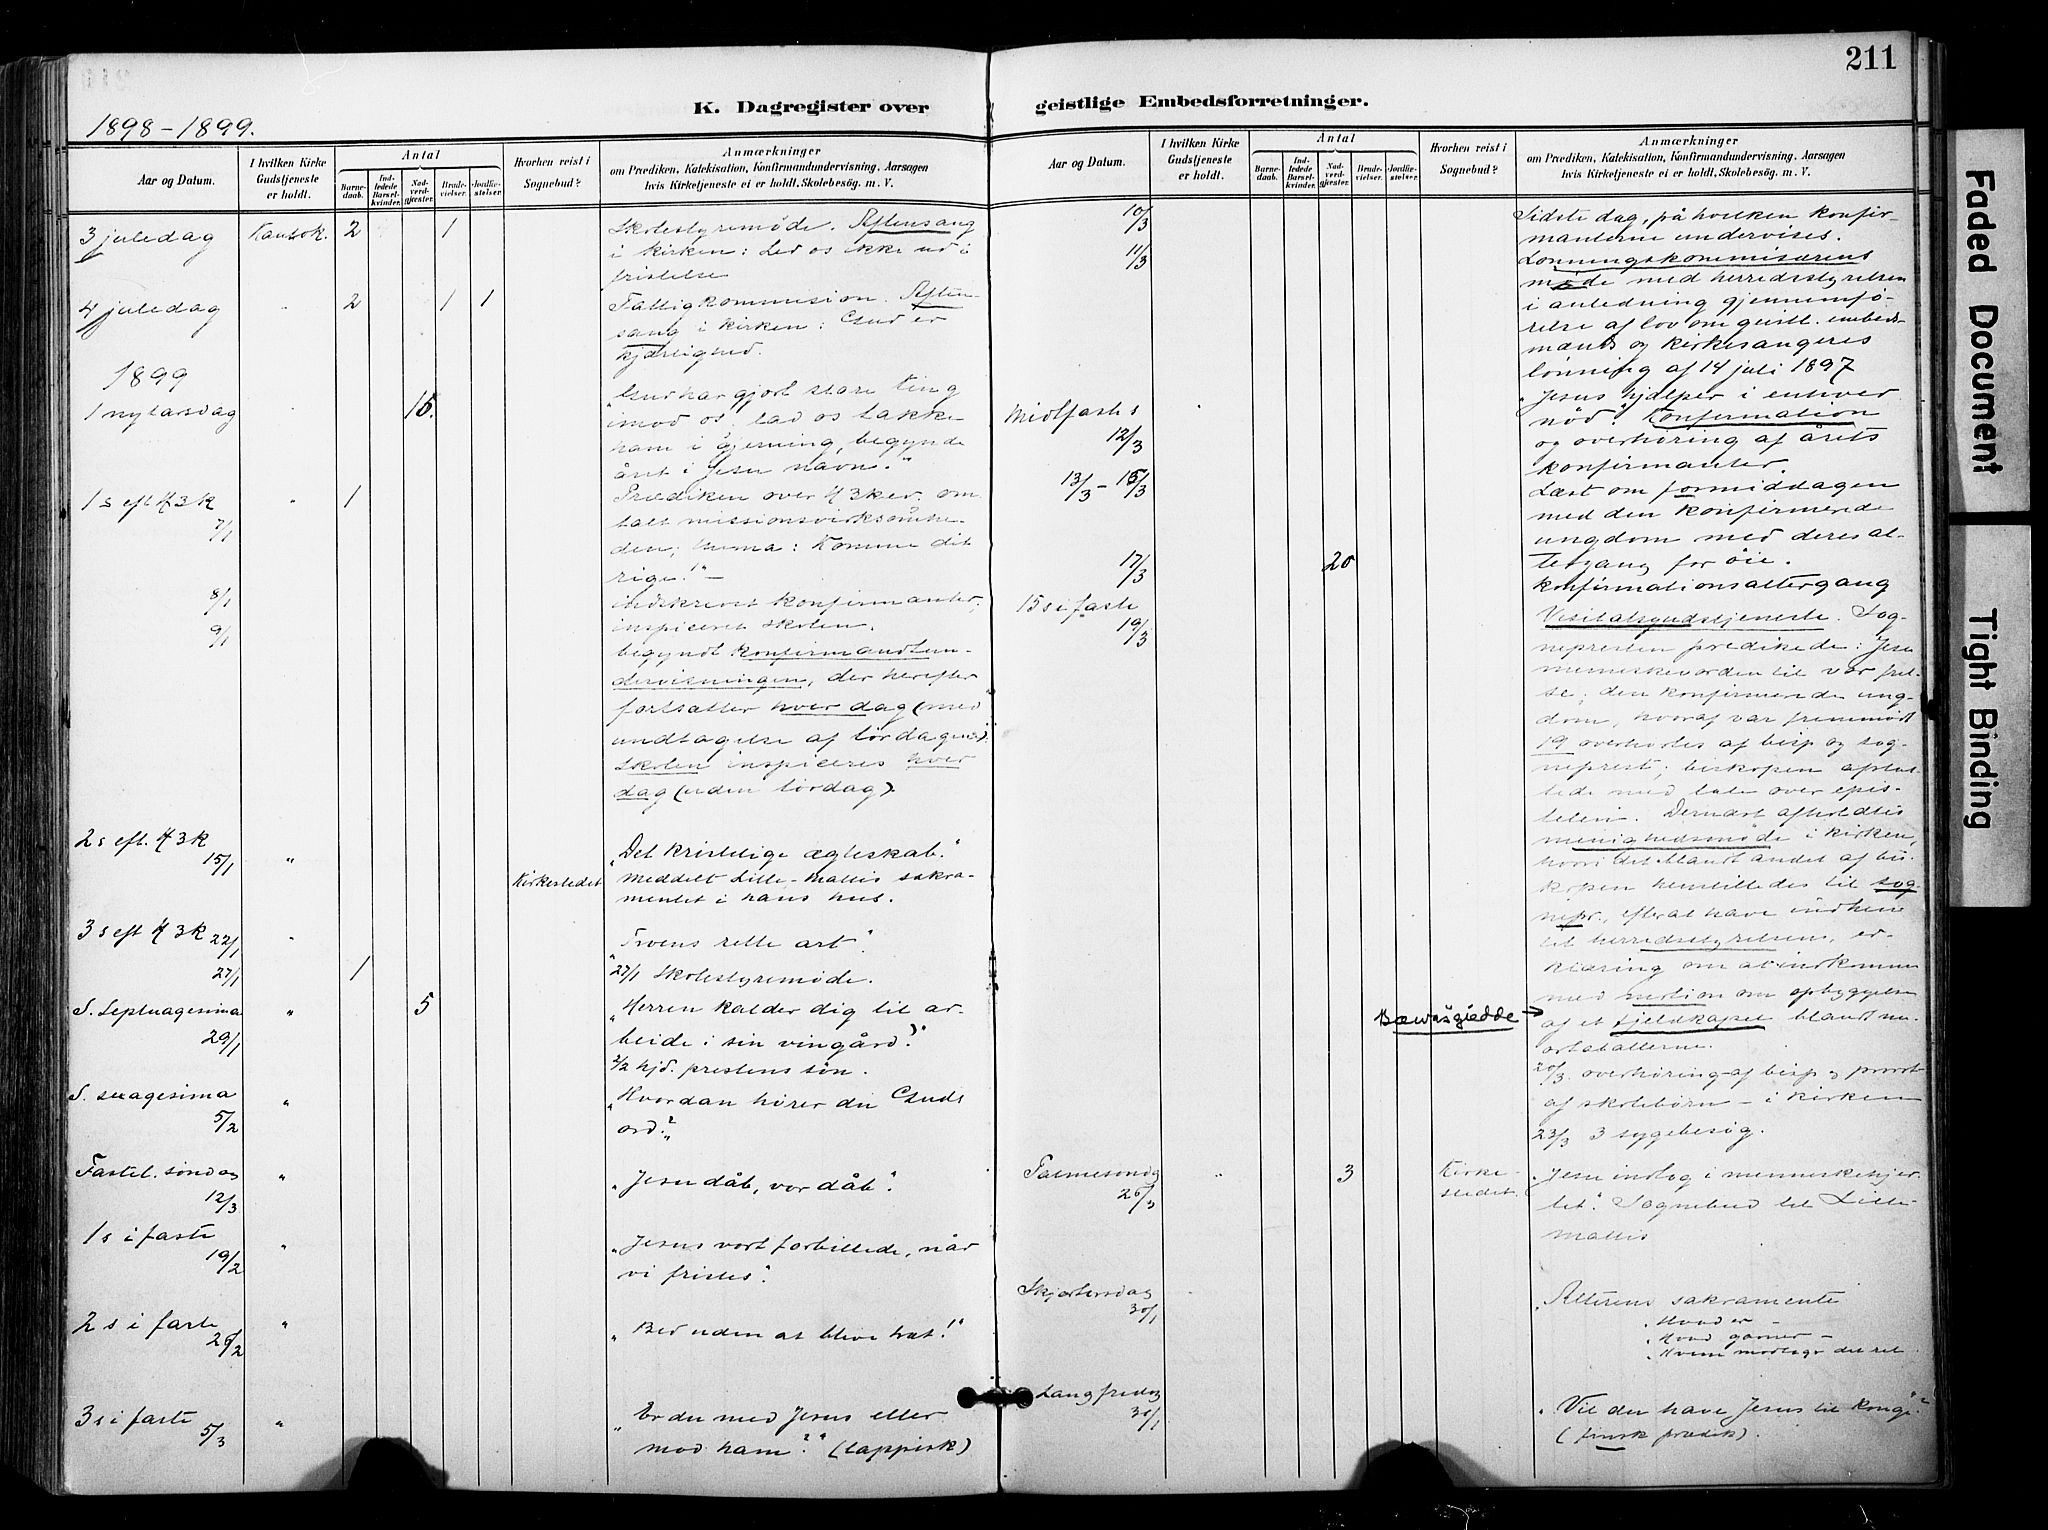 211
K. Dagregister over geistlige Embedsforretninger.
1898-1899.
Aar og Datum.
I hvilken Kirke Gudstjeneste er holdt.
Antal
Barnedaab.
Indledede Barselkvinder.
Nadverdgjester.
Brudevielser.
Jordfæstelser.
Hvorhen reist i Sognebud?
Anmærkninger
om Prædiken, Katekisation, Konfirmandundervisning. Aarsagen
hvis Kirketjeneste ei er holdt. Skolebesøg. m. V.
3 juledag Kautok. 2 1 Skolestyremøde. Aftensang
i kirken: Led os ikke ud i
fristelse
4 juledag " 2 1 1 Fattigkommision. Aften-
sang i kirken: Gud er
kjærlighed.
1899
1 nytårsdag " 16. "Gud har gjort store ting
imod os, lad os takke
ham i gjerning, begynde
året i Jesu navn."
1 s eft. H 3 K 7/1 " 1 Prædiken over H 3 ker. om
talt missionsvirksomhe-
den; tema: Komme dit
rige!" -
8/1 indskrevet konfirmanter,
inspiceret skolen.
9/1 begyndt konfirmandtun-
dervisningen, der herefter
fortsætter hver dag (med
undtagelse af lørdagene).
Skolen inspiceres hver
dag (uden lørdag).
2 s eft. H 3 K 15/1 " "Det kristelige ægteskab."
Kirkestedet Meddelt Lille-Mattis sakra-
mentet i hans hus.
3 s eft H 3 K 22/1 " "Troens rette art".
27/1 1 27/1 Skolestyremøde.
S. Septuagesima 29/1 " 5 "Herren kalder dig til ar-
beide i sin vingård."
2/2 hjd. prestens søn.
S. sexagesima 5/2 " "Hvordan hører du Guds
ord?"
Fastel. søndag 12/3 " "Jesu dåb, vor dåb".
1 s i faste 19/2 " "Jesus vort forbillede, når
vi fristes".
2 s i faste 26/2 " "Bed uden at blive træt!"
3 s i faste 5/3 " "Er du med Jesus eller
mod ham?" (lappisk)
Aar og Datum.
I hvilken Kirke Gudstjeneste er holdt.
Antal
Barnedaab.
Indledede Barselkvinder.
Nadverdgjester.
Brudevielser.
Jordfæstelser.
Hvorhen reist i Sognebud?
Anmærkninger
om Prædiken, Katekisation, Konfirmandundervisning. Aarsagen
hvis Kirketjeneste ei er holdt, Skolebesøg. m. V.
10/3 Sidste dag, på hvilken konfir-
manterne undervises.
11/3 Lønningskommisærens
møde med herredsstyrelsen
i anledning gjennemfø-
relse af lov om geistl. embeds-
mænds og kirkesangeres
lønning af 14 juli 1897
Midtfaste s 12/3 " "Jesus hjælper i enhver
nød". Konfirmation
og overhøring af årets
konfirmanter.
13/3 - 15/3 Læst om formiddagen
med den konfirmerede
ungdom med deres al-
tergang for øie.
17/3 20 Konfirmationsaltergang
15 s i faste 19/3 Visitatsgudstjeneste. Sog-
nepresten prædikede: Jesu
menneskevorden til vor frel-
se; den konfirmerede ung-
dom, hvoraf var fremmødt
19 overhørtes af bisp og sog-
neprest; biskopen aflut-
tede med tale over epis-
telen. Dernæst afholdtes
menighedsmøde i kirken,
hvori det blandt andet af bis-
kopen henstilledes til sog
nepr., efter at have indhente
til herredsstyrelsens, er-
klæring om at indkomme
med motion om opbyggelse
Bæwašgiedde → af et fjeldkapel blandt nu-
ortabatterne.
20/3. overhøring af bisp og provst
af skolebørn - i kirken
23/3 3 sygebesøg.
Palmesøndag 26/3 " 3 Kirke-
stedet. "Jesu indtog i menneskehjer-
tet." Sognebud til Lille
Mattis
Skjærtorsdag 30/1 "Alterens sakramente
"Hvad er -
"Hvad gavner -
"Hvem modtager det ret
Langfredag 31/1 "Vil du have Jesus til konge"?
(finsk prædik).
Faded Document
Tight Binding